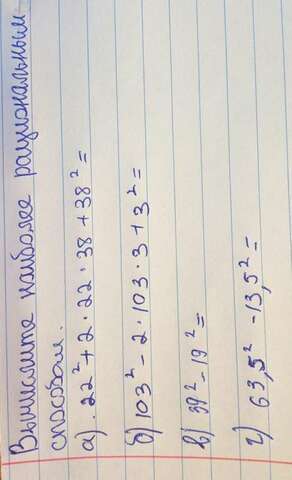 Вычислите наиболее рациональным
способом.
а) 22² + 2 · 22 · 38 + 38² =
б) 103² - 2 · 103 · 3 + 3² =
в) 39² - 19² =
г) 63,5² - 13,5² =